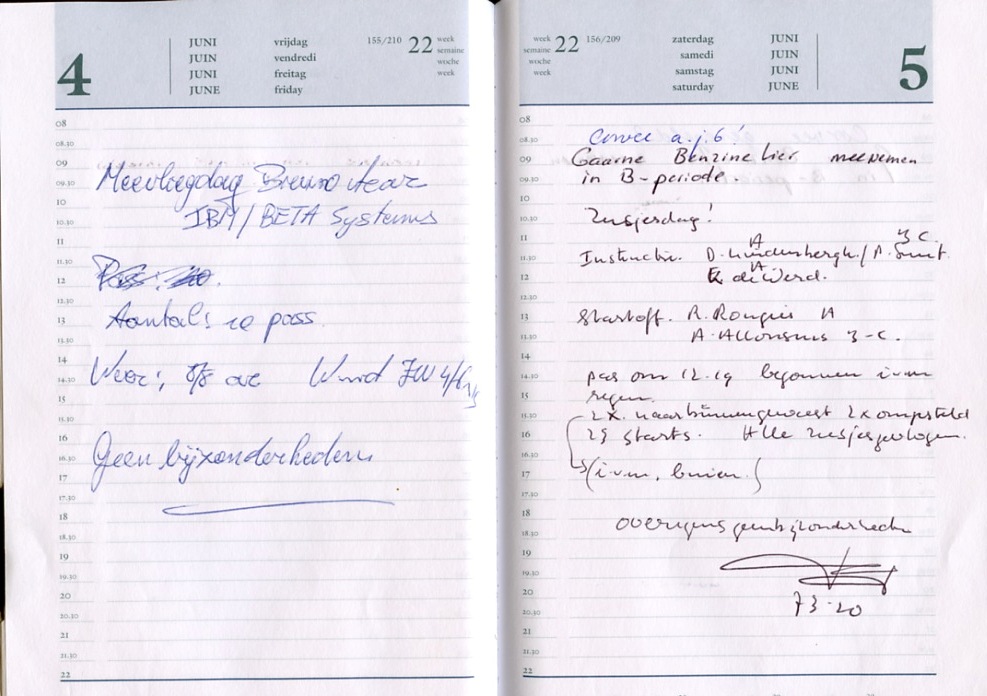 4
JUNI vrijdag 155/210 22 week
JUIN vendredi semaine
JUNI freitag woche
JUNE friday week
08
08.30
09
09.30 Meevliegdag Bruno
10
10.30 IBM/BETA Systems
11
11.30
12
12.30
13 Aantal: 10 pass.
13.30
14
14.30 Weer: 8/8 Wind ZW 4/6
15
15.30
16
16.30 Geen bijzonderheden
17
17.30
18
18.30
19
19.30
20
20.30
21
21.30
22
week 22 156/209 zaterdag JUNI 5
semaine samedi JUIN
woche samstag JUNI
week saturday JUNE
08
08.30 Corvee a.j.6!
09 Gaarne Benzine hier meenemen
09.30 in B-periode.
10
10.30 Zusjesdag!
11 A 3 C.
11.30 Instructie. D. Lindenbergh./ P. Smit.
12 A
12.30
13 Startoff. R. A
13.30 A. 3-C.
14
14.30 pas om 12.19 begonnen i.v.m
15 regen.
15.30 2x. naar binnen geweest 2x opgesteld
16 29 starts. Alle zusjes gevlogen.
16.30
17 (i.v.m. buien.)
17.30
18 overigens geen bijzonderheden
18.30
19
19.30
20 73-20
20.30
21
21.30
22